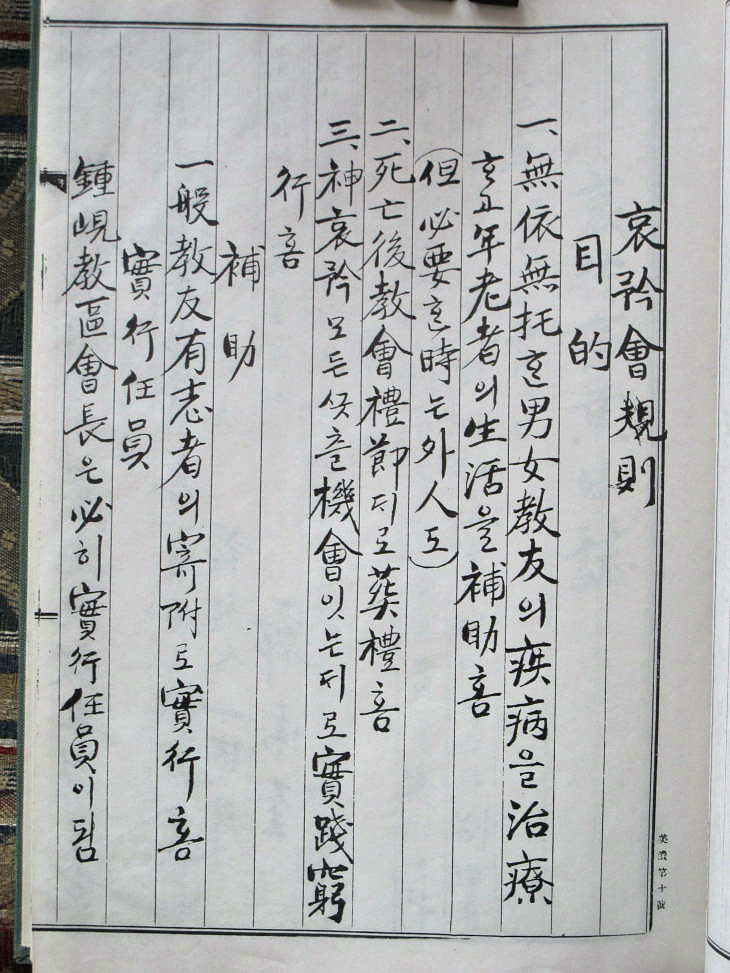 哀矜會規則
目的
一、無依無托ᄒᆞᆫ男女敎友의疾病을治療
ᄒᆞ고年老者의生活을補助홈
(但必要ᄒᆞᆫ時는外人도)
二、死亡後敎會禮節ᄃᆡ로葬禮홈
三、神哀矜모든ᄭᅳᆺ을機會잇는ᄃᆡ로實踐窮
行홈
補助
一般敎友有志者의寄附로實行홈
實行任員
鍾峴敎區會長은必히實行任員이됨
美濃第十號